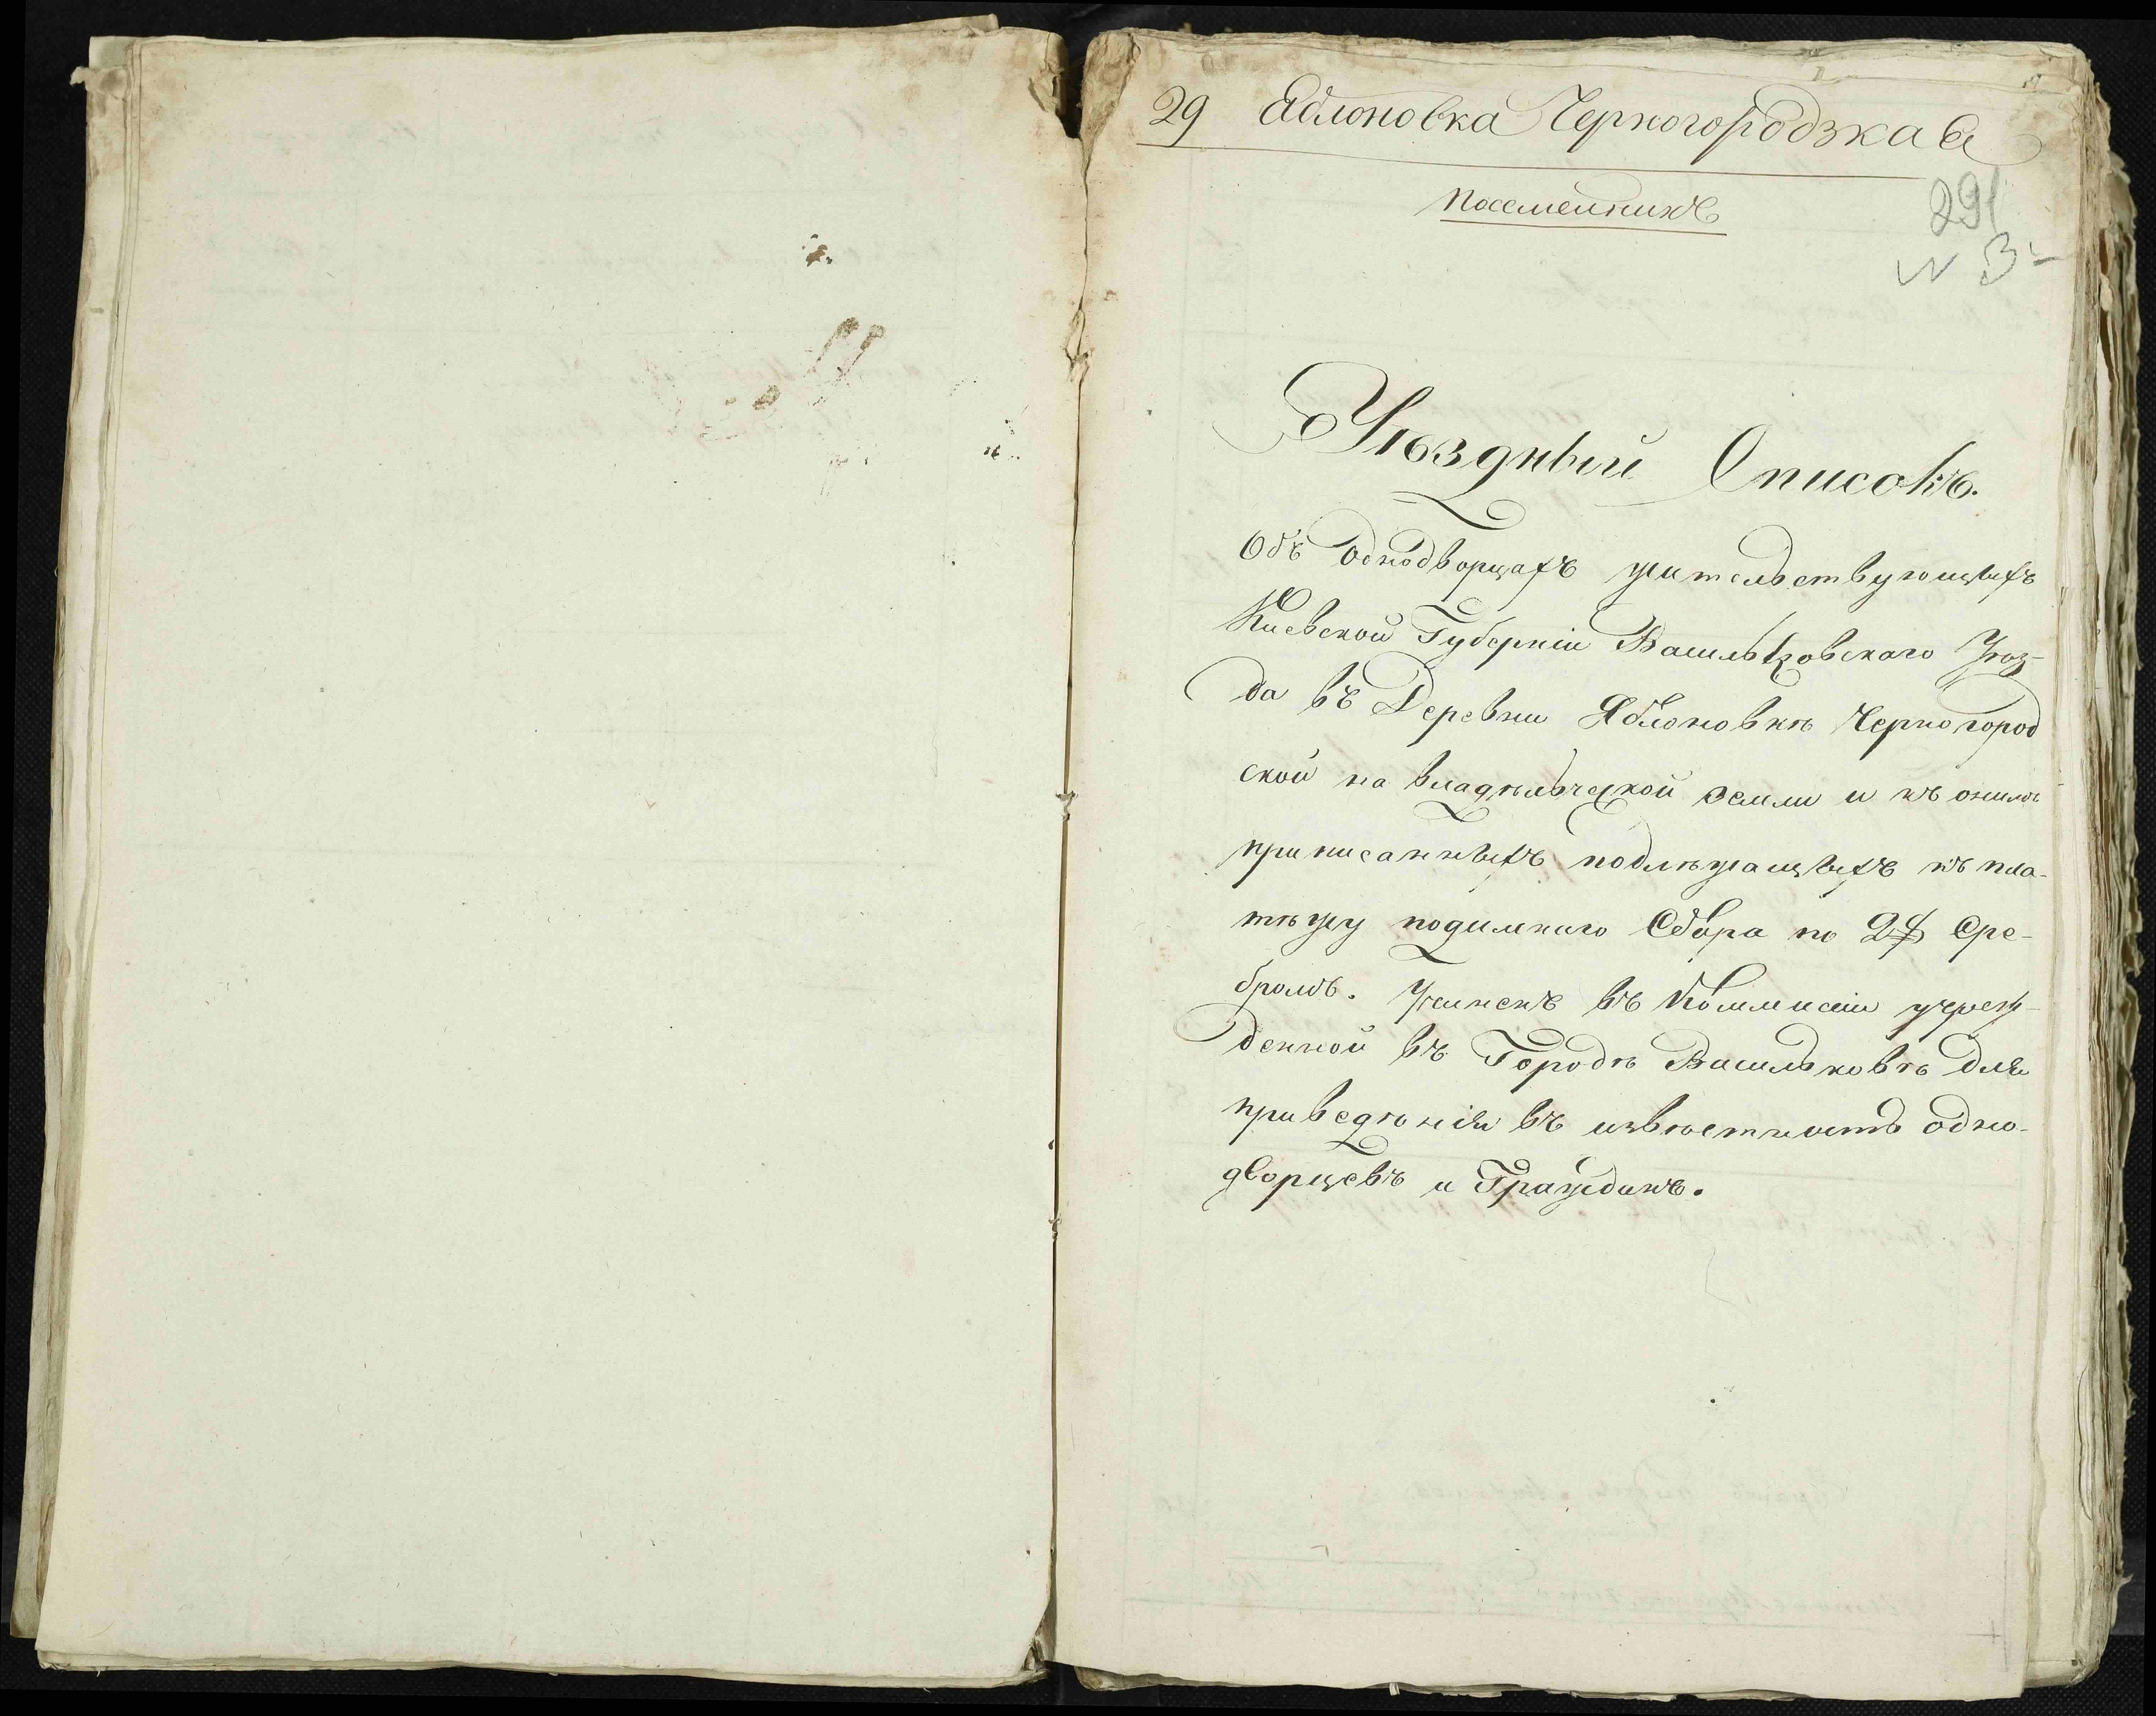 29 Яблоновка Черногородзкая
посемейникъ
291
N 3
Уѣздный Списокъ.
Объ однодворцахъ жительствующихъ
Киевской Губерніи Васильковскаго Уѣз-
да въ Деревни Яблоновкѣ Черногород
ской на владѣльческой земли и къ оной
приписанныхъ подлѣжащихъ къ пла-
тѣжу подимнаго Сбора по 2 Сре-
бромъ. въ Коммисіи учреж-
денной въ Городѣ Васильковѣ для
приведѣнія въ извѣстность одно-
дворцевъ и Гражданъ.